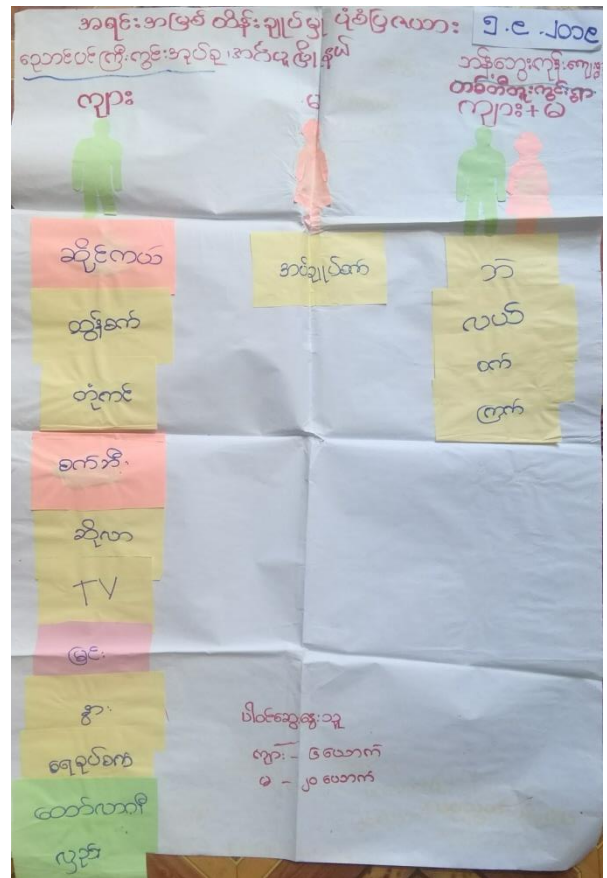 အရင်းအမြစ် ထိန်းချုပ်မှု ပုံစံပြဇယား
၅.၉.၂၀၁၉
ညောင်ပင်ကြီးကွင်းအုပ်စု၊အင်္ဂပူမြို့နယ်
ကျား
မ
ကျား+မ
ဆိုင်ကယ်
ထွန်စက်
တုံကင်
စက်ဘီး
ဆိုလာ
TV
မြင်း
နွား
ရေစုပ်စက်
ထော်လာဂျီ
လှည်း
အပ်ချုပ်စက်
ဘဲ
လယ်
ဝက်
ကြက်
ပါဝင်ဆွေးနွေးသူ
ကျား - ၆ ယောက်
မ - ၂၀ ယောက်